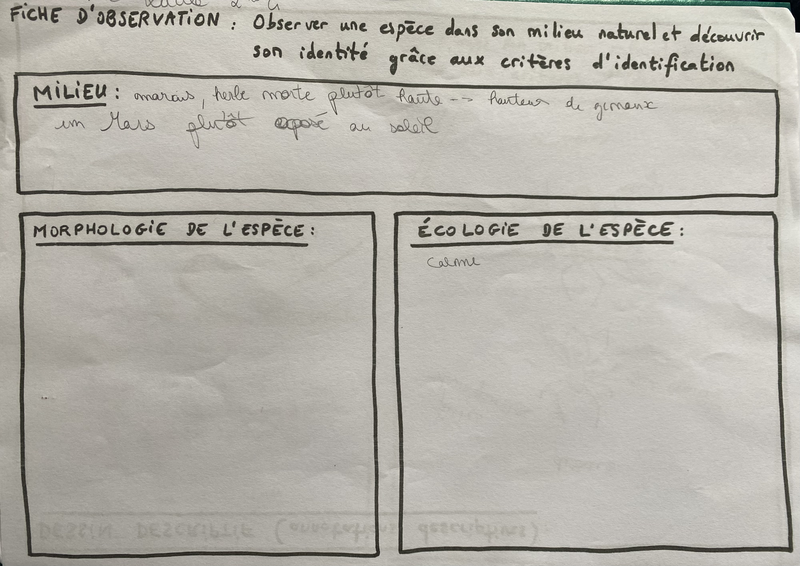 FICHE D'OBSERVATION : Observer une espèce dans son milieu naturel et découvrir
son identité grâce aux critères d'identification
MILIEU : marais, herbe morte plutôt haute --> hauteur de genoux
un Mars plutôt exposé au soleil
MORPHOLOGIE DE L'ESPÈCE :
ÉCOLOGIE DE L'ESPÈCE :
calme
DESSIN DESCRIPTIF (annotations descriptives)